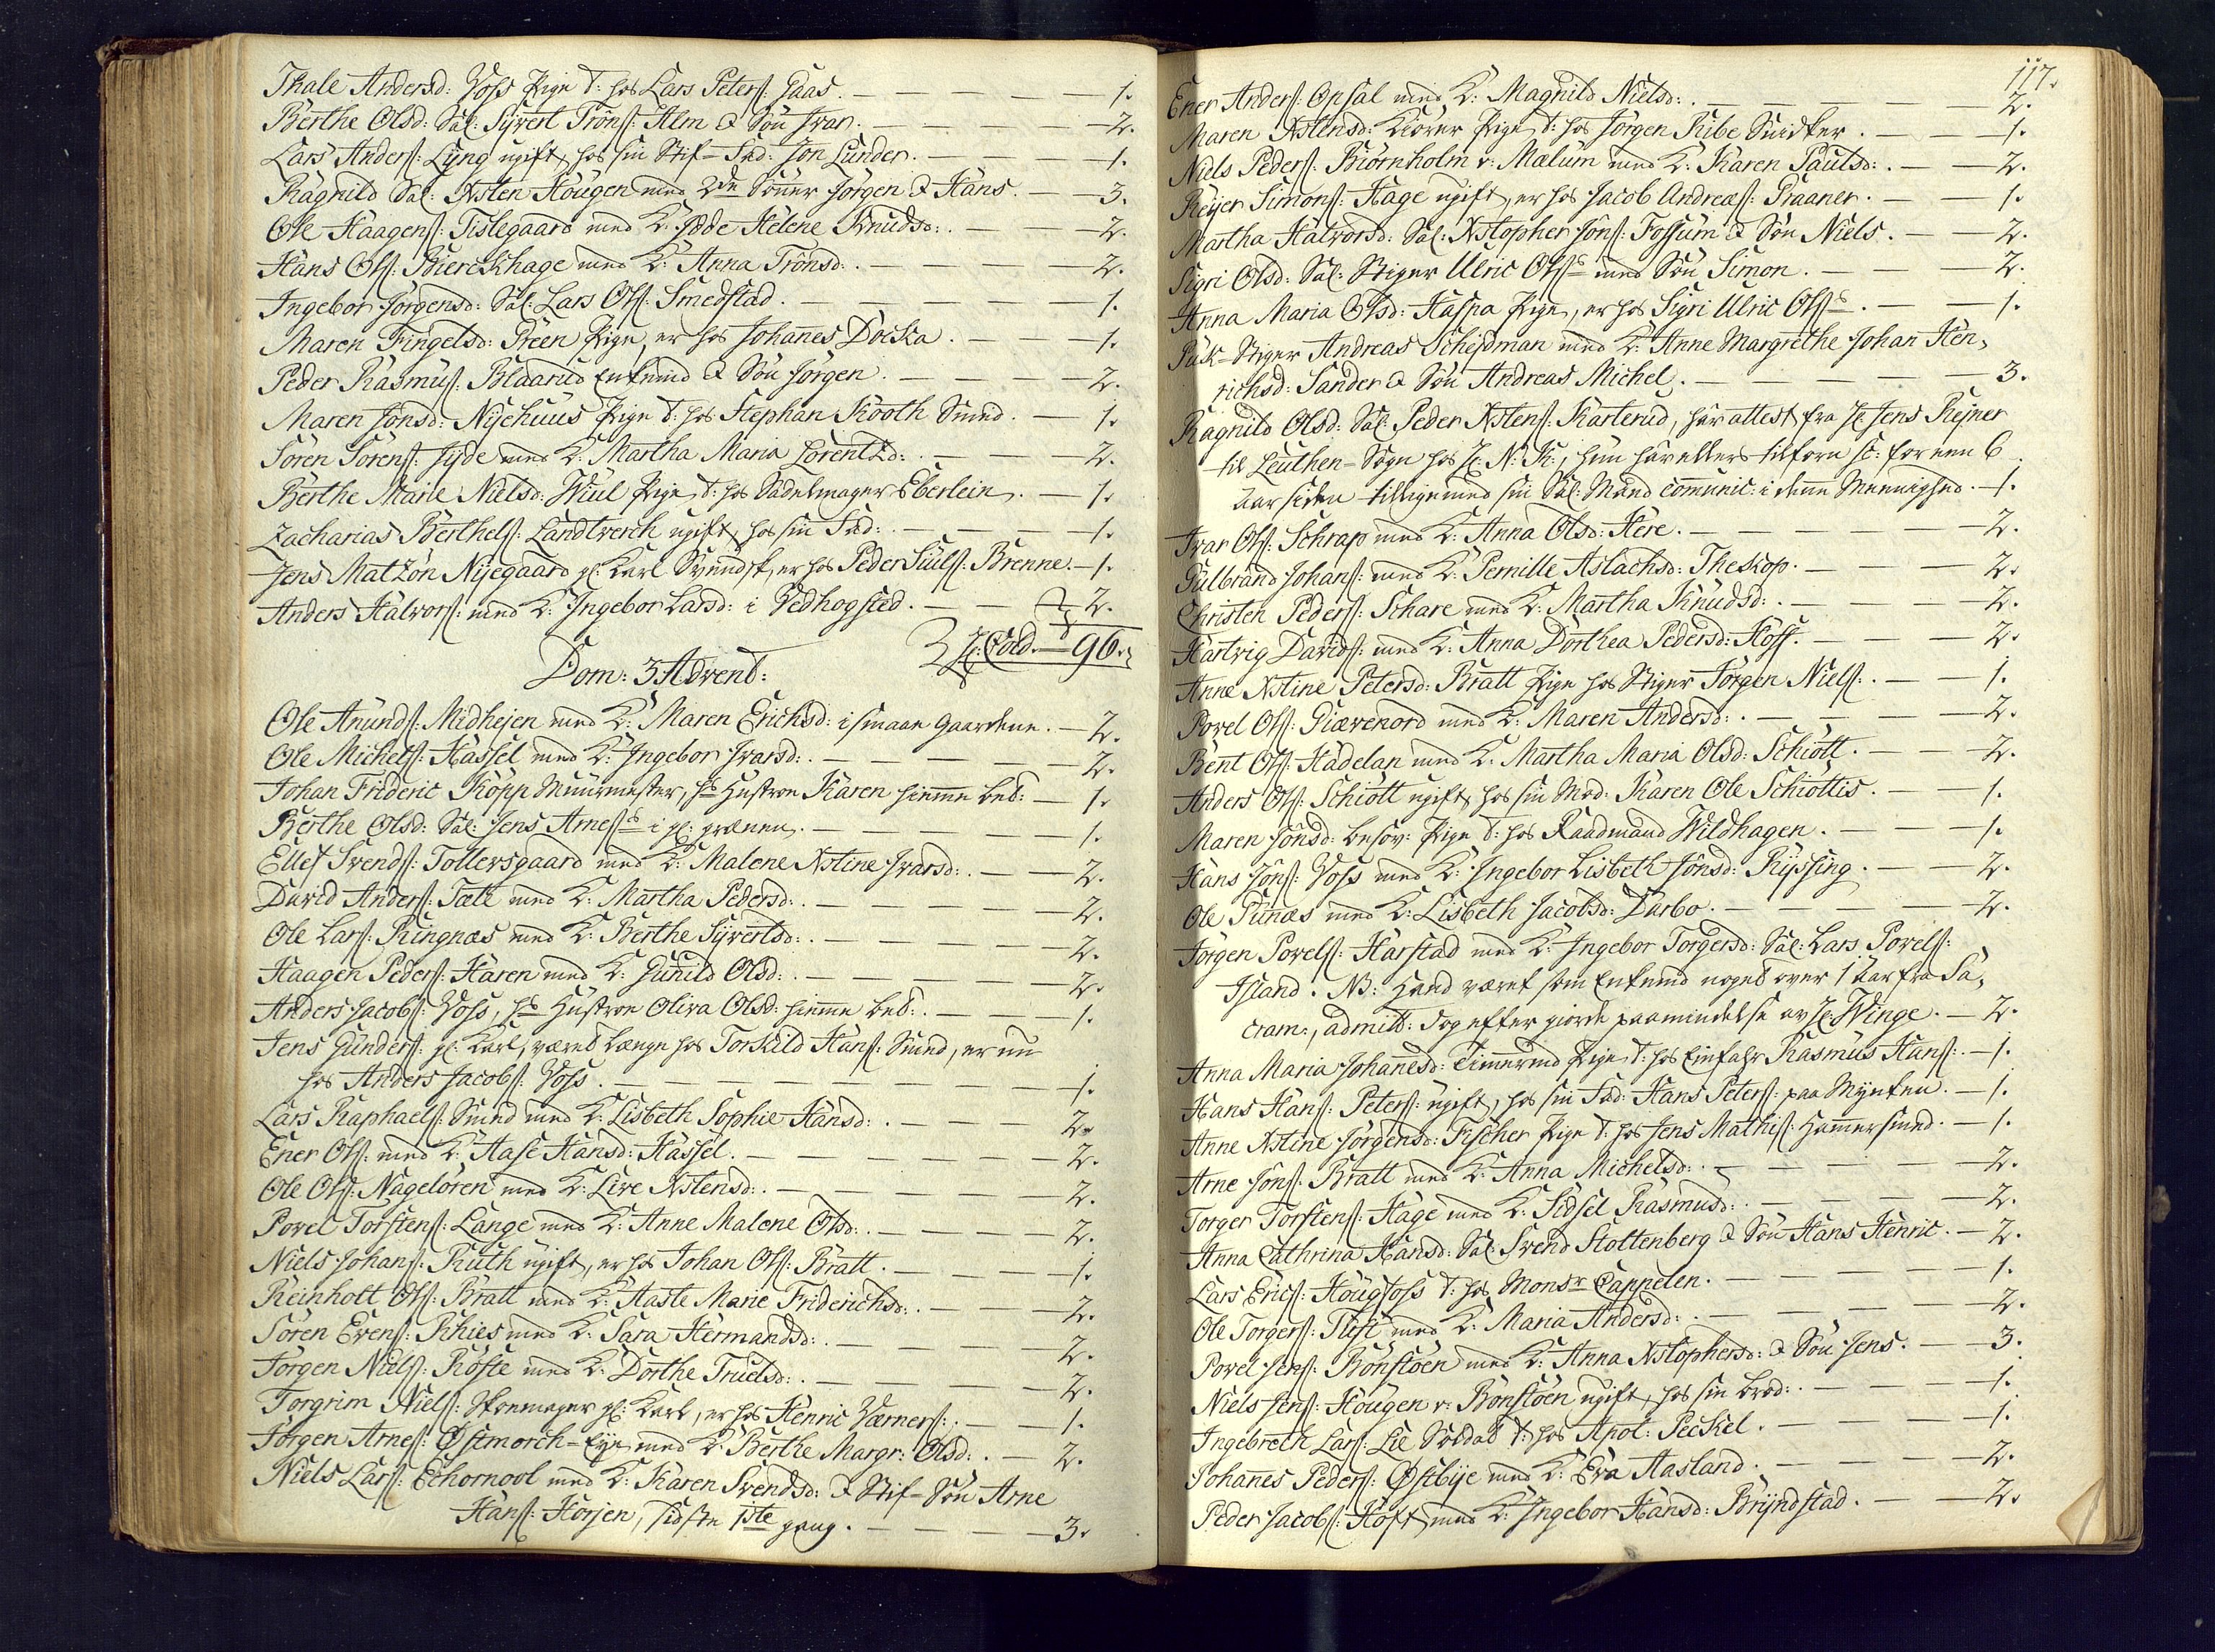 Thale Andersd: Voss Pige t: hos Lars Peters: Haas. — 1.
Berthe Olsd: Sal: Syvert Trons: Alm & Søn Ivar. — 2.
Lars Anders: Lyng ugift, hos sin Stif-Fad: Jon Lunder. — 1.
Ragnild Sal: Xsten Høugen med 2de Sønner Jørgen & Hans. — 3.
Ole Haagens: Tislegaard med K: Helene Knudsd: . — 2.
Hans Ols: Bierckhage med K: Anna Tronsd: . — 2.
Ingebor Jørgensd: Sal: Lars Ols: Smedstad. — 1.
Maren Fingelsd: Preen Pige, er hos Johanes Docka. — 1.
Peder Rasmus: Blaarud Enkemd & Søn Jørgen. — 2.
Maren Jonsd: Nyehuus Pige t: hos Stephan Kooth Smed. — 1.
Søren Sørens: Jyde med K: Martha Maria Lorentzd: . — 2.
Berthe Marie Nielsd: Wiul Pige t: hos Sadelmager Eberlein. — 1.
Zacharias Berthels: Landtverch ugift, hos sin Fad: . — 1.
Jens Matzøn Nyegaard gl: Karl Svendsk, er hos Peder Siuls: Brenne. — 1.
Anders Halvors: med K: Ingebor Larsd: i Vedhogsted. — 2.
H: Cold. — 96.
Dom: 3 Advent:
Ole Amunds: Midhejen med K: Maren Erichsd: i smaae Gaardene. — 2.
Ole Michels: Hassel med K: Ingebor Ivarsd: . — 2.
Johan Frideric Køpp Muurmester, hs Hustroe Karen hiemme bet: — 1.
Berthe Olsd: Sal: Jens Arnes: i gl: grænen. — 1.
Ellef Svends: Tollersgaard med K: Malene Xstine Ivarsd: . — 2.
David Anders: Tæte med K: Martha Pedersd: . — 2.
Ole Lars: Ringnæs med K: Berthe Syvertsd: . — 2.
Haagen Peders: Haren med K: Gunild Olsd: . — 2.
Anders Jacobs: Voss, hs Hustroe Oliva Olsd: hiemme bet: . — 1.
Jens Gunders: gl: Karl, været længe hos Torkild Hans: Smed, er nu
hos Anders Jacobs: Voss. — 1.
Lars Raphaels: Smed med K: Lisbeth Sophie Hansd: . — 2.
Ener Ols: med K: Aase Hansd: Hassel. — 2.
Ole Ols: Nageløren med K: Live Xstensd: . — 2.
Povel Torstens: Lange med K: Anne Malene Olsd: . — 2.
Niels Johans: Ruth ugift, er hos Johan Ols: Bratt. — 1.
Reinholt Ols: Bratt med K: Aaste Marie Friderichsd: . — 2.
Søren Evens: Rhies med K: Sara Hermandsd: . — 2.
Jørgen Niels: Røste med K: Dorthe Truelsd: . — 2.
Torgrim Niels: Skoemager gl: Karl, er hos Henric Værners: . — 1.
Jørgen Arnes: Østmorch-Eje med K: Berthe Margr: Olsd: . — 2.
Niels Lars: Echornool med K: Karen Svendsd: & Stif-Søn Arne
Hans: Horjen, sidste 1ste gang. — 3.
117.
Ener Anders: Opsal med K: Magnild Nielsd: . — 2.
Maren Xstensd: Kiørrer Pige t: hos Jørgen Ribe Snidker. — 1.
Niels Peders: Biørnholm v: Mælum med K: Karen Paulsd: . — 2.
Rejer Simons: Hage ugift, er hos Jacob Andreæs: Praaner. — 1.
Martha Halvorsd: Sal: Xstopher Jons: Fossum & Søn Niels. — 2.
Sigri Olsd: Sal: Stiger Ulric Ols: med Søn Simon. — 2.
Anna Maria Olsd: Haspa Pige, er hos Sigri Ulric Ols: . — 1.
Puk-Stiger Andreas Schejdman med K: Anne Margrethe Johan Hen,
richsd: Sander & Søn Andreas Michel. — 3.
Ragnild Olsd: Sal: Peder Xstens: Karterud, har attest fra H: Jens Rejner
til Leuthen-Sogn hos H: N: K:, hun har ellers tilforn sc: for een 6
aar siden tilligemed sin Sal: Mand communic: i denne Meenighed. — 1.
Ivar Ols: Schrap med K: Anna Olsd: Here. — 2.
Gulbrand Johans: med K: Pernille Aslachsd: Theskop. — 2.
Christen Peders: Schare med K: Martha Knudsd: . — 2.
Hartvig Davids: med K: Anna Dorthea Pedersd: Hoff. — 2.
Anne Xstine Petersd: Bratt Pige hos Stiger Jørgen Niels: . — 1.
Povel Ols: Giævenord med K: Maren Andersd: . — 2.
Bent Ols: Hadelan med K: Martha Maria Olsd: Schiøtt. — 2.
Anders Ols: Schiøtt ugift, hos sin Mod: Karen Ole Schiøttis. — 1.
Maren Jonsd: besov: Pige t: hos Raadmand Wildhagen. — 1.
Hans Jons: Voss med K: Ingebor Lisbeth Jonsd: Ryssing. — 2.
Ole Punæs med K: Lisbeth Jacobsd: Darbo. — 2.
Jørgen Povels: Harstad med K: Ingebor Torgersd: Sal: Lars Povels:
Island. NB: Hand været som Enkemd noget over 1 aar fra Sa,
cram:, admitt: dog efter giorde paamindelse av H: Winge. — 2.
Anna Maria Johanesd: Timmermd Pige t: hos Einfahr Rasmus Hans: . — 1.
Hans Hans: Peters: ugift, hos sin Fad: Hans Peters: paa Mynten. — 1.
Anne Xstine Jørgensd: Fischer Pige t: hos Jens Mathis: Hammersmed. — 1.
Arne Jons: Bratt med K: Anna Michelsd: . — 2.
Torger Torstens: Hage med K: Sidsel Rasmusd: . — 2.
Anna Cathrina Hansd: Sal: Svend Stottenberg & Søn Hans Henric. — 2.
Lars Erics: Høugfoss t: hos Monsr Cappelen. — 1.
Ole Torgers: med K: Maria Andersd: . — 2.
Povel Jens: Bønstøen med K: Anna Xstophersd: & Søn Jens. — 3.
Niels Jens: Høugen v: Bønstøen ugift, hos sin brod: . — 1.
Ingebreth Lars: Lie Soldat t: hos Apot: Peckel. — 1.
Johanes Peders: Østbye med K: Eva Aasland. — 2.
Peder Jacobs: Hoft med K: Ingebor Hansd: Bryndstad. — 2.